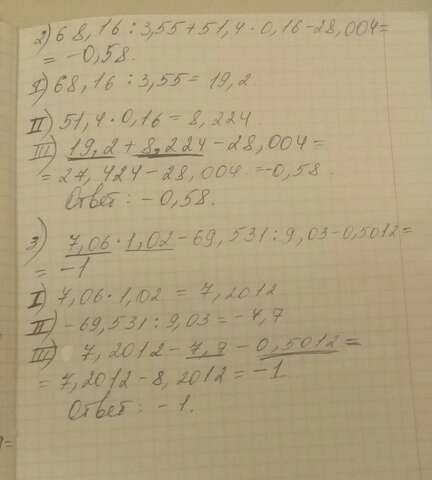 2) 68,16 : 3,55 + 51,4 · 0,16 - 28,004 =
= -0,58.
I) 68,16 : 3,55 = 19,2
II) 51,4 · 0,16 = 8,224
III) 19,2 + 8,224 - 28,004 =
= 27,424 - 28,004 = -0,58.
Ответ: -0,58.
3) 7,06 · 1,02 - 69,531 : 9,03 - 0,5012 =
= -1
I) 7,06 · 1,02 = 7,2012
II) -69,531 : 9,03 = -7,7
III) 7,2012 - 7,7 - 0,5012 =
= 7,2012 - 8,2012 = -1
Ответ: -1.